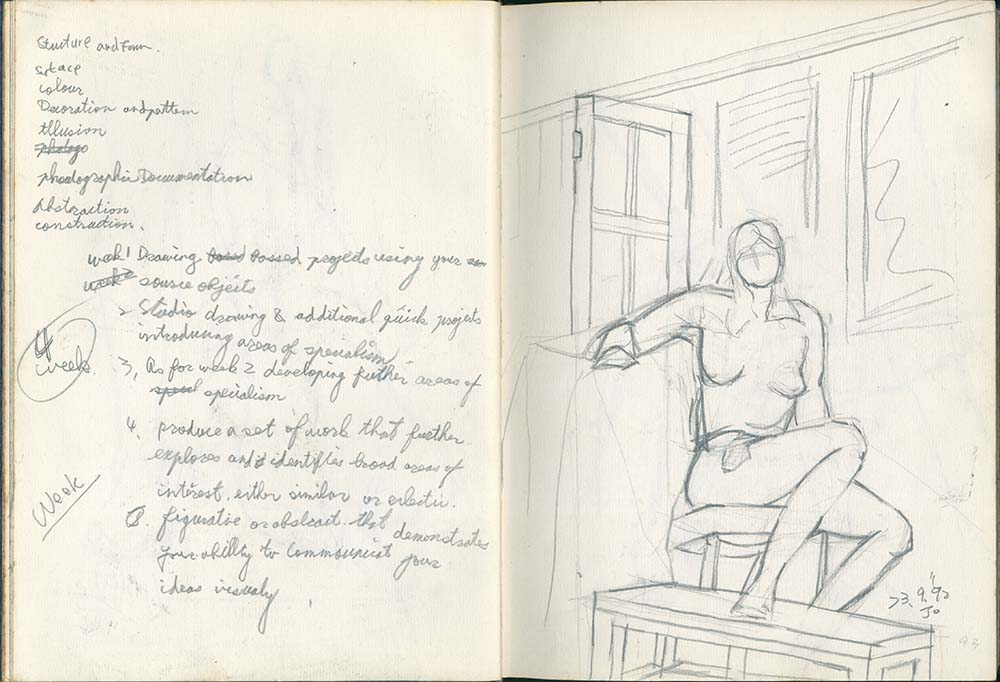 Structure and Form.
Surface
Colour
Decoration and pattern
Illusion
photogo
photographic Documentation
Abstraction
construction.
week 1 Drawing based bassed projects using your
week 2 source objects
2 Studio drawing & additional quick projects
introducing areas of specialism
4
week
3, As for week 2 developing futher areas of
specialism
4. produce a set of work that further
explores and identifies broad areas of
interest, either similar or eclectic.
Week
figurative or abstract. that demonstrates
your ability to communicat your
ideas visualy
23. 9. "92
Jo
93